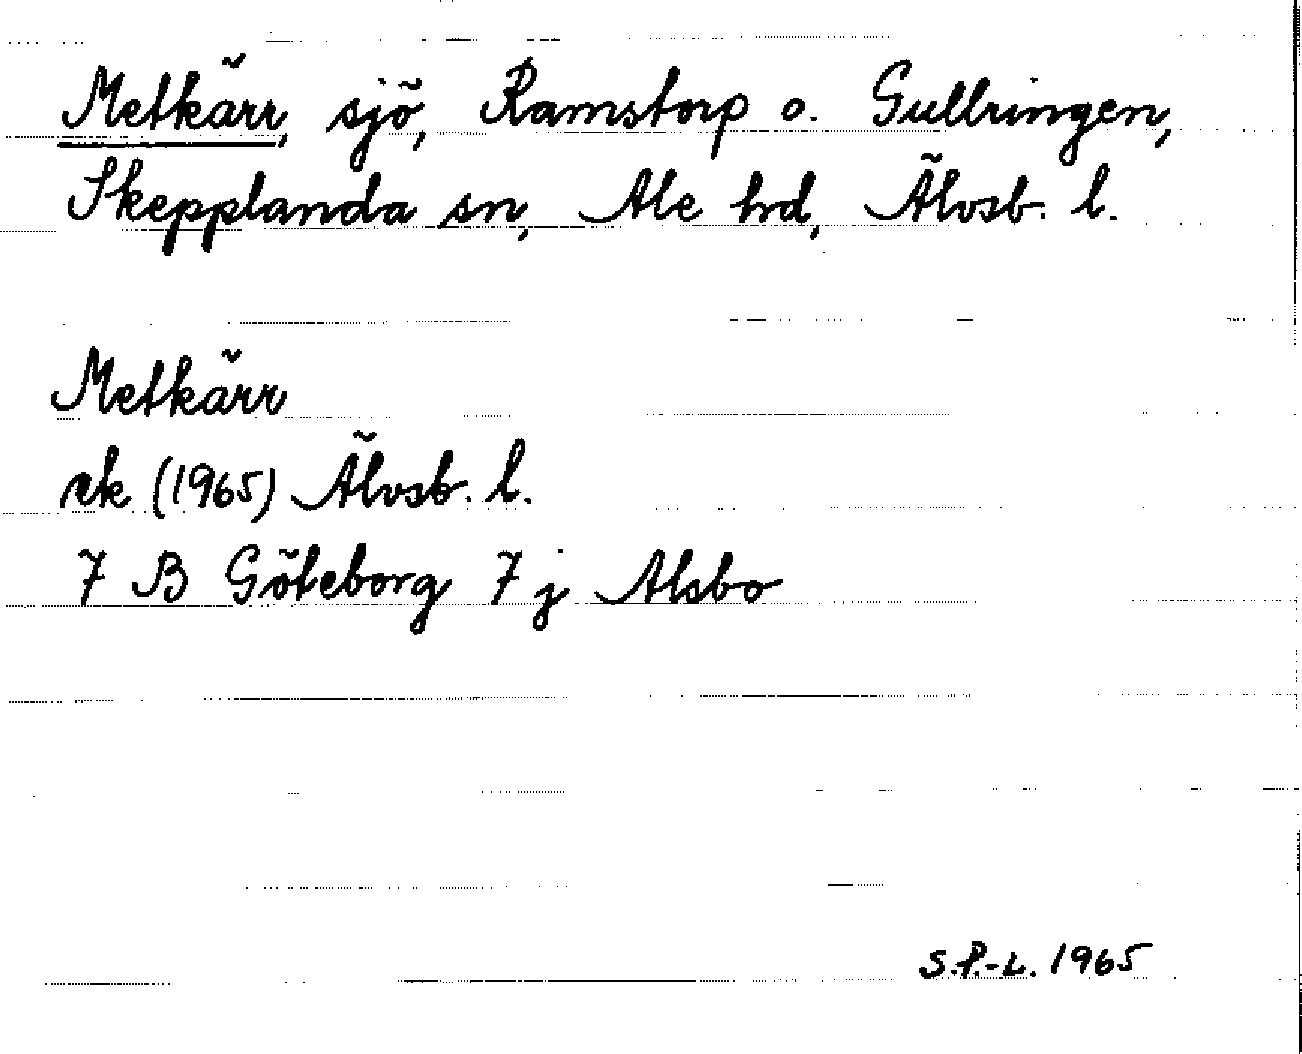 Metkärr, sjö, Ramstorp o. Gullringen,
Skepplanda sn, Ale hd, Älvsb. l.
Metkärr
ek (1965) Älvsb. l.
7 B Göteborg 7 j Alsbo
S.P.-L. 1965